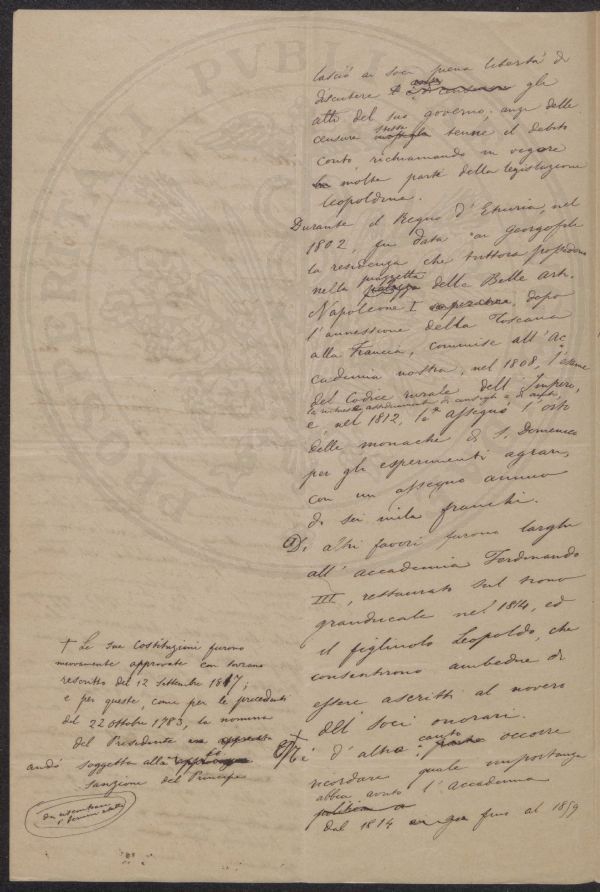 lasciò ai soci piena libertà di
discutere gli
atti del suo governo; anzi delle
censure stesse tenne il debito
conto richiamando in vigore
molte parti della legislazione
leopoldina.
Durante il Regno d'Etruria, nel
1802, fu data ai Georgofili
la residenza che tuttora possiedono
nella piazzetta delle Belle Arti.
Napoleone I, dopo
l'annessione della Toscana
alla Francia, commise all'Ac
cademia nostra, nel 1808, l'esame
del Codice rurale dell'Impero,
la richiese assiduamente di consigli e di
e, nel 1812, le assegnò l'orto
delle monache di S. Domenico
per gli esperimenti agrari,
con un assegno annuo
di sei mila franchi.
Di altri favori furono larghi
all'accademia Ferdinando
III, restaurato sul trono
granducale nel 1814, ed
il figliuolo Leopoldo, che
consentirono ambedue di
essere ascritti al novero
dei soci onorari.
E d'altro canto occorre
ricordare quale importanza
abbia avuto l'Accademia
dal 1814 fino al 1859
+ Le sue Costituzioni furono
nuovamente approvate con sovrano
rescritto del 12 Settembre 1817;
e per queste, come per le precedenti
del 22 ottobre 1783, la nomina
del Presidente
andò soggetta alla
sanzione del Principe
PVBLI